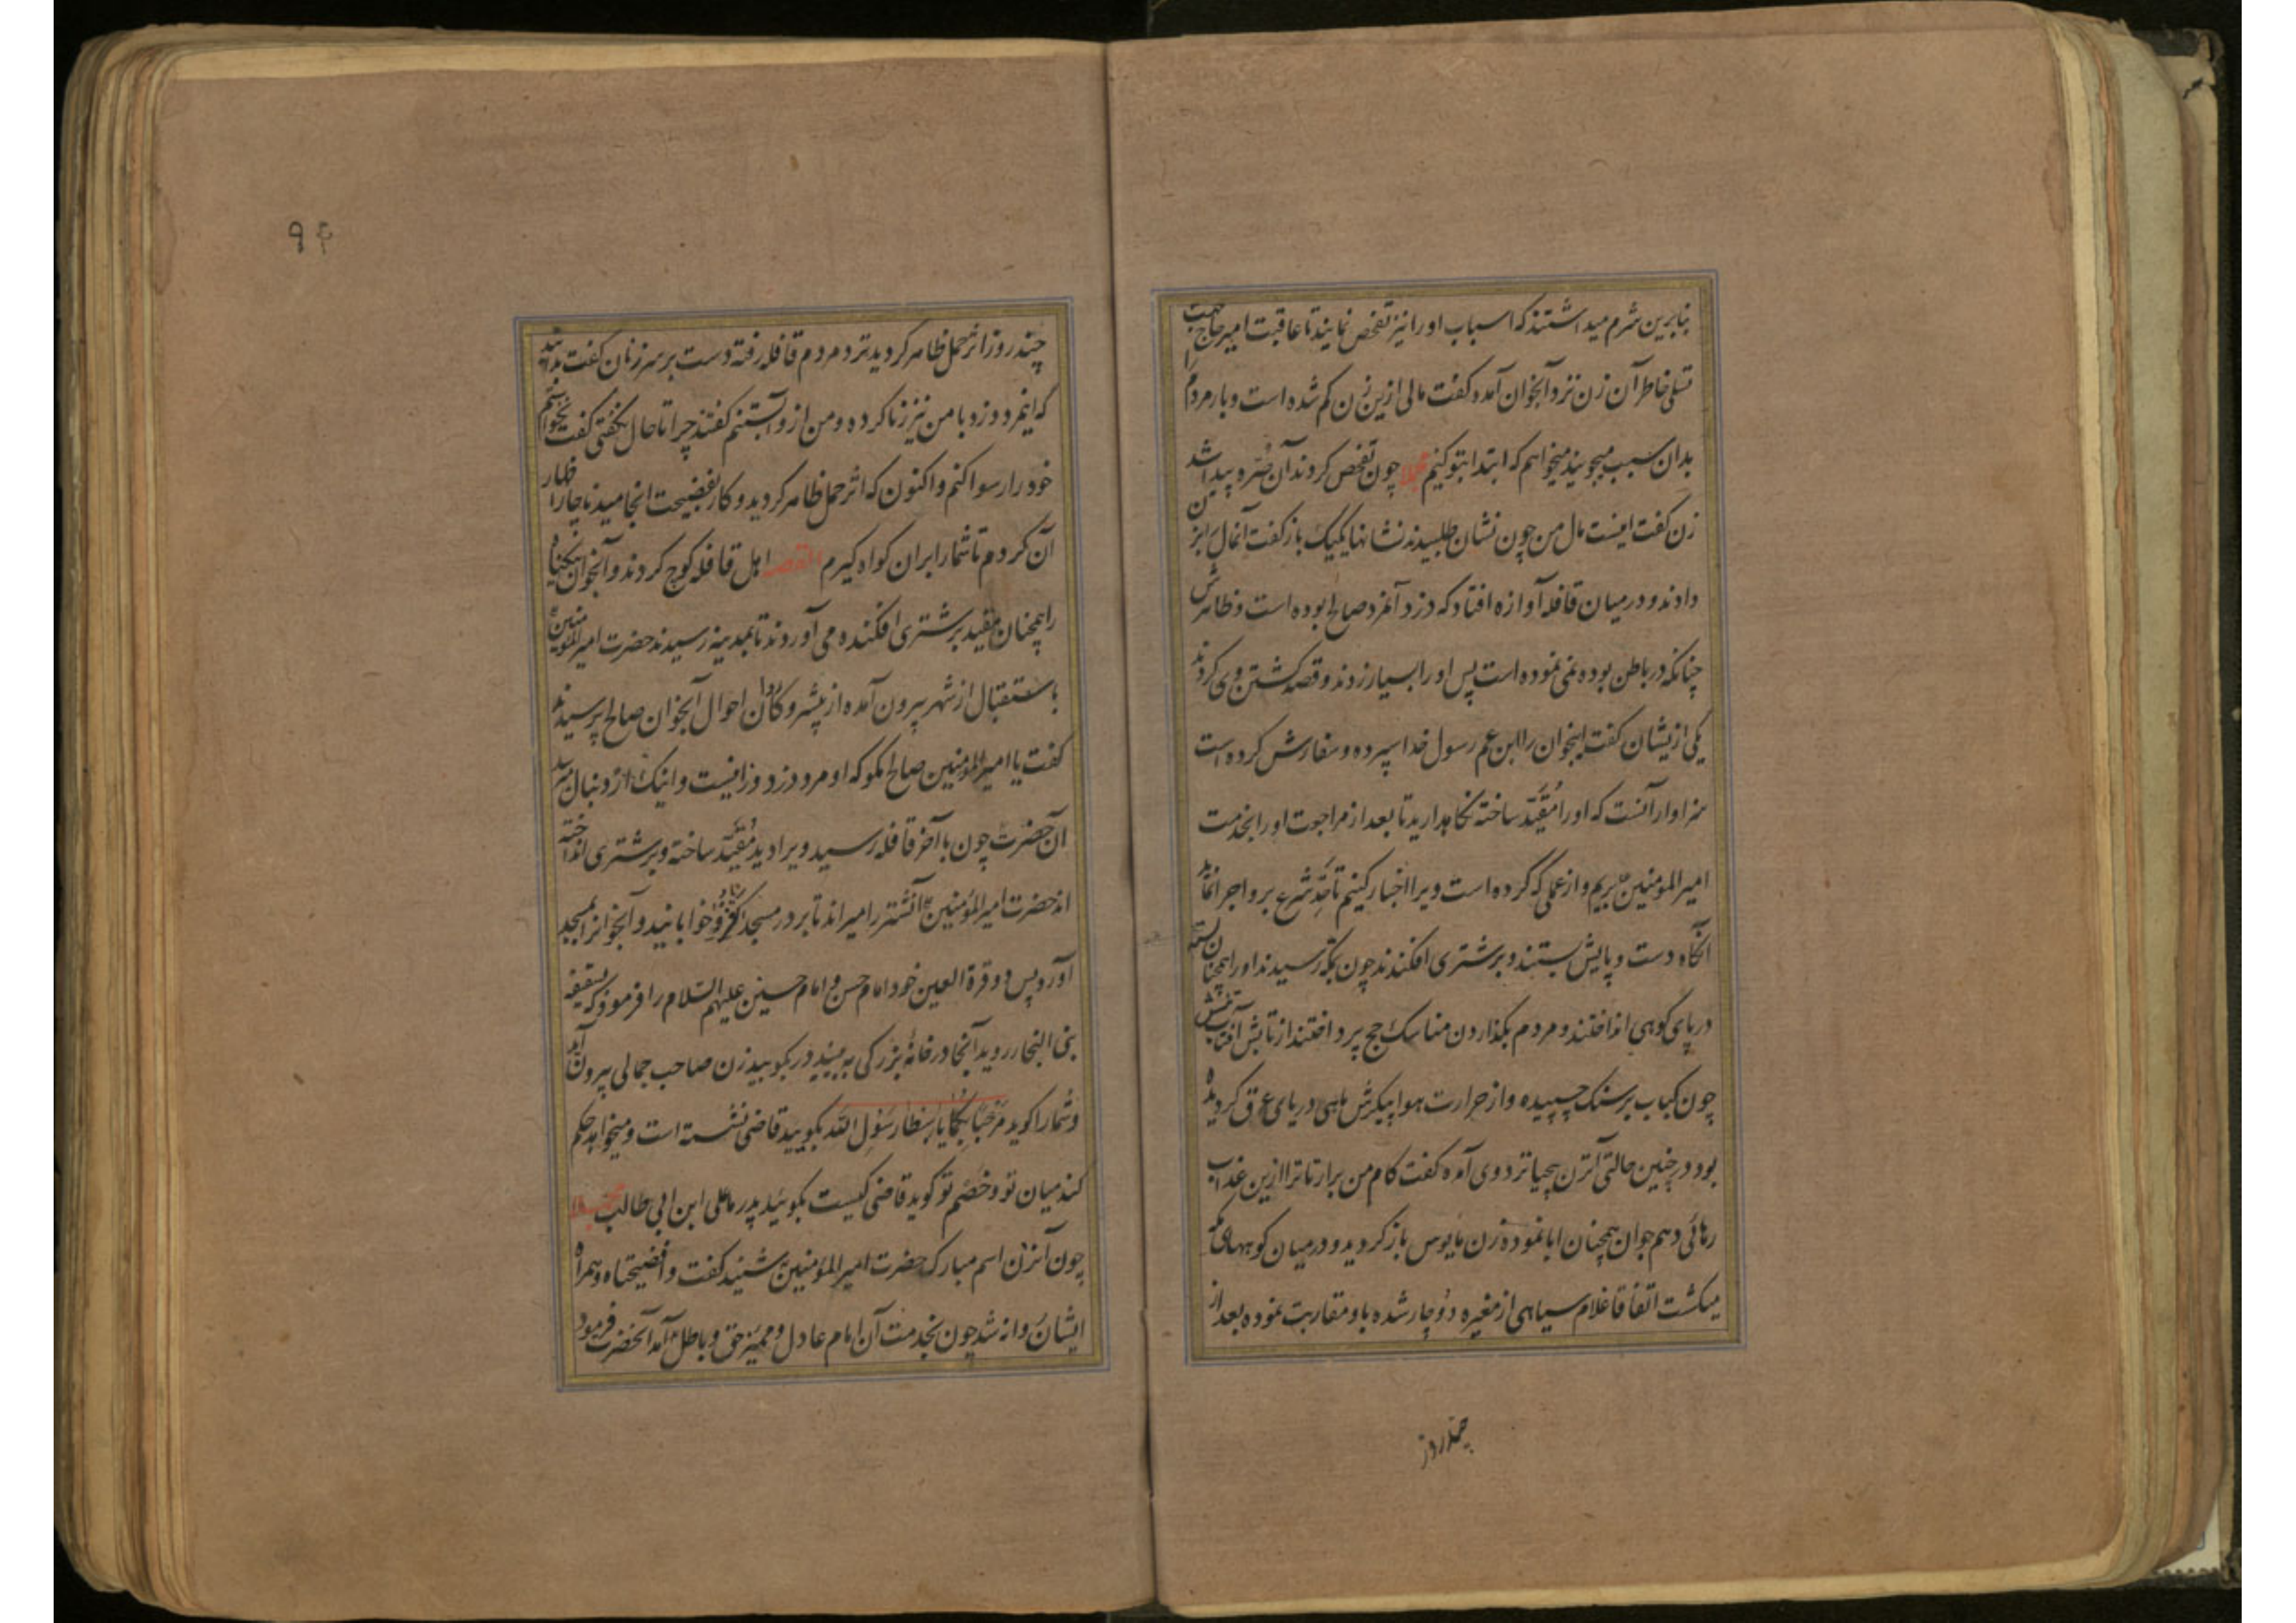 بنابرین شرم میداشتند که اسباب او را نیز تفحص نمایند تا عاقبت امیر حاج جهت
تسلی خاطر آن زن نزد آنجوان آمده کفت مالی ازین زن کم شده است و بار مردم را
بدان سبب میجویند میخواهم که ابتدا بتو کنیم چون تفحص کردند آن صره پیدا شد
زن کفت اینست مال من چون نشان طلبیدند نشانها یکیک باز کفت آنمال بزن
دادند و در میان قافله آوازه افتاد که دزد آنمرد صالح بوده است و ظاهرش
چنانکه در باطن بوده نمی نموده است پس او را بسیار زدند و قصد کشتن وی کردند
یکی ازیشان کفت اینجوان را ابن عم رسول خدا سپرده و سفارش کرده است
سزاوار آنست که او را مقید ساخته نکاهدارید تا بعد از مراجعت او را بخدمت
امیرالمؤمنین بریم و از عملی که کرده است ویرا اخبار کنیم تا حد شرع برو اجرا نماید
آنکاه دست و پایش بستند و بر شتری افکندند چون بمکه رسیدند او را همچنان بسته
در پای کوهی انداختند و مردم بکذاردن مناسک حج پرداختند از تابش آفتاب تنش
چون کباب بر سنک چسپیده و از حرارت هوا پیکرش ماهی دریای عرق کردیده
بود در چنین حالتی آنزن بیحیا نزد وی آمده کفت کام من برار تا ترا ازین عذاب
رهائی دهم جوان همچنان ابا نموده زن مایوس باز کردید و در میان کوههای مکه
میکشت اتفاقا غلام سیاهی از مغیره دوچار شده باو مقاربت نموده بعد از
چند روز
۹۴
چند روز اثر حمل ظاهر کردید نزد مردم قافله رفته دست بر سر زنان کفت بدانید
که اینمرد دزد با من نیز زنا کرده و من ازو آبستنم کفتند چرا تا حال نکفتی کفت نخواستم
خود را رسوا کنم و اکنون که اثر حمل ظاهر کردید و کار بفضیحت انجامید ناچار اظهار
آن کردم تا شما را بران کواه کیرم القصه اهل قافله کوچ کردند و آنجوان بیکناه
را همچنان مقید بر شتری افکنده می آوردند تا بمدینه رسیدند حضرت امیرالمؤمنین
باستقبال از شهر بیرون آمده از پیشروکان احوال آنجوان صالح پرسیدند
کفت یا امیرالمؤمنین صالح مکو که او مرد دزد و زانیست و اینک از دنبال میرسد
آن حضرت چون بآخر قافله رسید ویرا دید مقید ساخته و بر شتری انداخته
اند حضرت امیرالمؤمنین آنشتر را میراند تا بر در مسجد و خوابانید و آنجوانرا بمسجد
آورد پس دو قرة العین خود امام حسن و امام حسین علیهم السلام را فرمود که بسقیفه
بنی النجار روید آنجا در خانهٔ بزرکی به بینید در بکوبید زن صاحب جمالی بیرون آید
و شما را کوید مرحبا بکما یا سبطا رسول الله بکویید قاضی نشسته است و میخواهد حکم
کند میان تو و خصم تو کوید قاضی کیست بکوئید پدر ما علی ابن ابی طالب
چون آنزن اسم مبارک حضرت امیرالمؤمنین شنید کفت وافضیحتاه و همراه
ایشان روانه شد چون بخدمت آن امام عادل و ممیز حق و باطل آمد آنحضرت فرمود